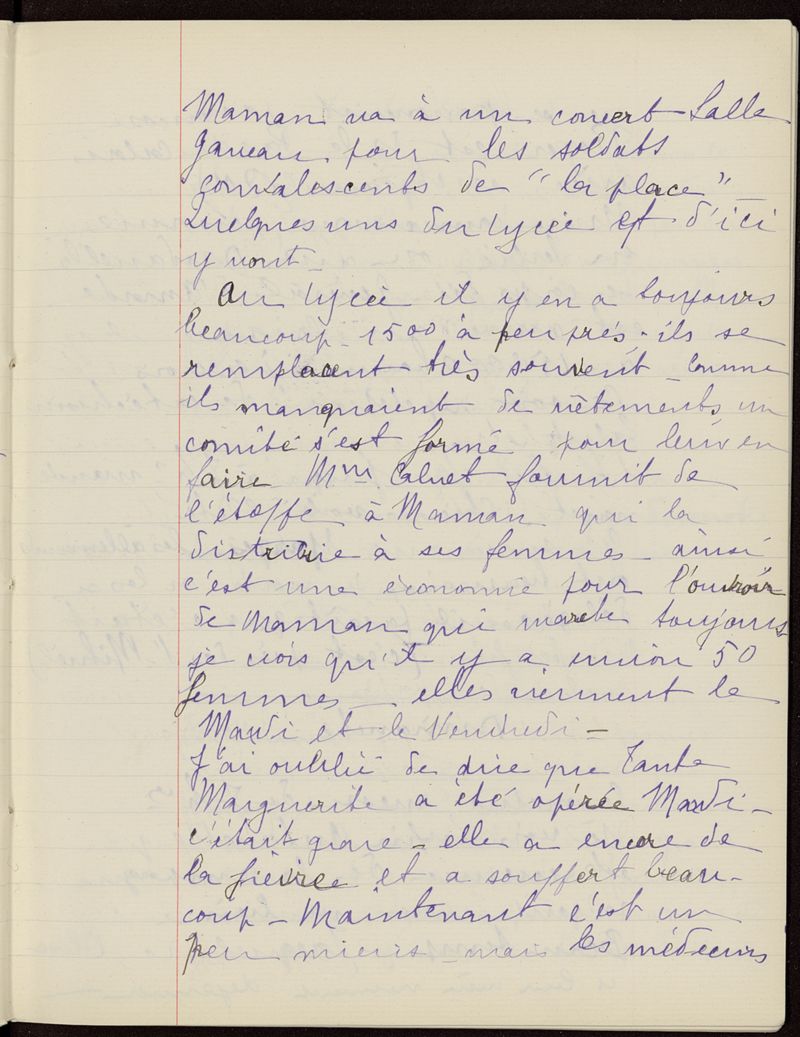 Maman va à un concert Salle
Gaveau pour les soldats
convalescents de "la place"
quelques uns du lycée et d'ici
y vont –
Au lycée il y en a toujours
beaucoup – 1500 à peu près – ils se
remplacent très souvent – comme
ils manquaient de vêtements un
comité s'est formé pour leur en
faire Mme Calvet fournit de
l'étoffe à Maman qui la
distribue à ses femmes – ainsi
c'est une économie pour l'ouvroir
de Maman qui marche toujours
je crois qu'il y a environ 50
femmes – elles viennent le
Mardi et le Vendredi –
J'ai oublié de dire que Tante
Marguerite a été opérée Mardi –
c'était grave – elle a encore de
la fièvre et a souffert beau-
coup – Maintenant c'est un
peu mieux – mais les médecins